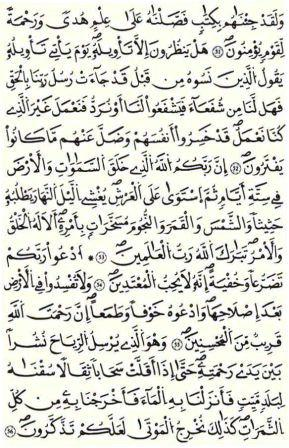 وَلَقَدْ جِئْنَٰهُم بِكِتَٰبٍ فَصَّلْنَٰهُ عَلَىٰ عِلْمٍ هُدًى وَرَحْمَةً
لِّقَوْمٍ يُؤْمِنُونَ ٥١ هَلْ يَنظُرُونَ إِلَّا تَأْوِيلَهُۥ يَوْمَ يَأْتِي تَأْوِيلُهُۥ
يَقُولُ الَّذِينَ نَسُوهُ مِن قَبْلُ قَدْ جَاءَتْ رُسُلُ رَبِّنَا بِالْحَقِّ
فَهَل لَّنَا مِن شُفَعَاءَ فَيَشْفَعُوا لَنَا أَوْ نُرَدُّ فَنَعْمَلَ غَيْرَ الَّذِي
كُنَّا نَعْمَلُ قَدْ خَسِرُوا أَنفُسَهُمْ وَضَلَّ عَنْهُم مَّا كَانُوا
يَفْتَرُونَ ٥٢ إِنَّ رَبَّكُمُ اللَّهُ الَّذِي خَلَقَ السَّمَٰوَٰتِ وَالْأَرْضَ
فِي سِتَّةِ أَيَّامٍ ثُمَّ اسْتَوَىٰ عَلَى الْعَرْشِ يُغْشِي اللَّيْلَ النَّهَارَ يَطْلُبُهُۥ
حَثِيثًا وَالشَّمْسَ وَالْقَمَرَ وَالنُّجُومَ مُسَخَّرَٰتٍ بِأَمْرِهِ أَلَا لَهُ الْخَلْقُ
وَالْأَمْرُ تَبَارَكَ اللَّهُ رَبُّ الْعَٰلَمِينَ ٥٣ * ادْعُوا رَبَّكُمْ
تَضَرُّعًا وَخُفْيَةً إِنَّهُۥ لَا يُحِبُّ الْمُعْتَدِينَ ٥٤ وَلَا تُفْسِدُوا فِي الْأَرْضِ
بَعْدَ إِصْلَٰحِهَا وَادْعُوهُ خَوْفًا وَطَمَعًا إِنَّ رَحْمَتَ اللَّهِ
قَرِيبٌ مِّنَ الْمُحْسِنِينَ ٥٥ وَهُوَ الَّذِي يُرْسِلُ الرِّيَاحَ نُشُرًا
بَيْنَ يَدَيْ رَحْمَتِهِ حَتَّىٰ إِذَا أَقَلَّتْ سَحَابًا ثِقَالًا سُقْنَٰهُ
لِبَلَدٍ مَّيِّتٍ فَأَنزَلْنَا بِهِ الْمَاءَ فَأَخْرَجْنَا بِهِ مِن كُلِّ
الثَّمَرَٰتِ كَذَٰلِكَ نُخْرِجُ الْمَوْتَىٰ لَعَلَّكُمْ تَذَّكَّرُونَ ٥٦